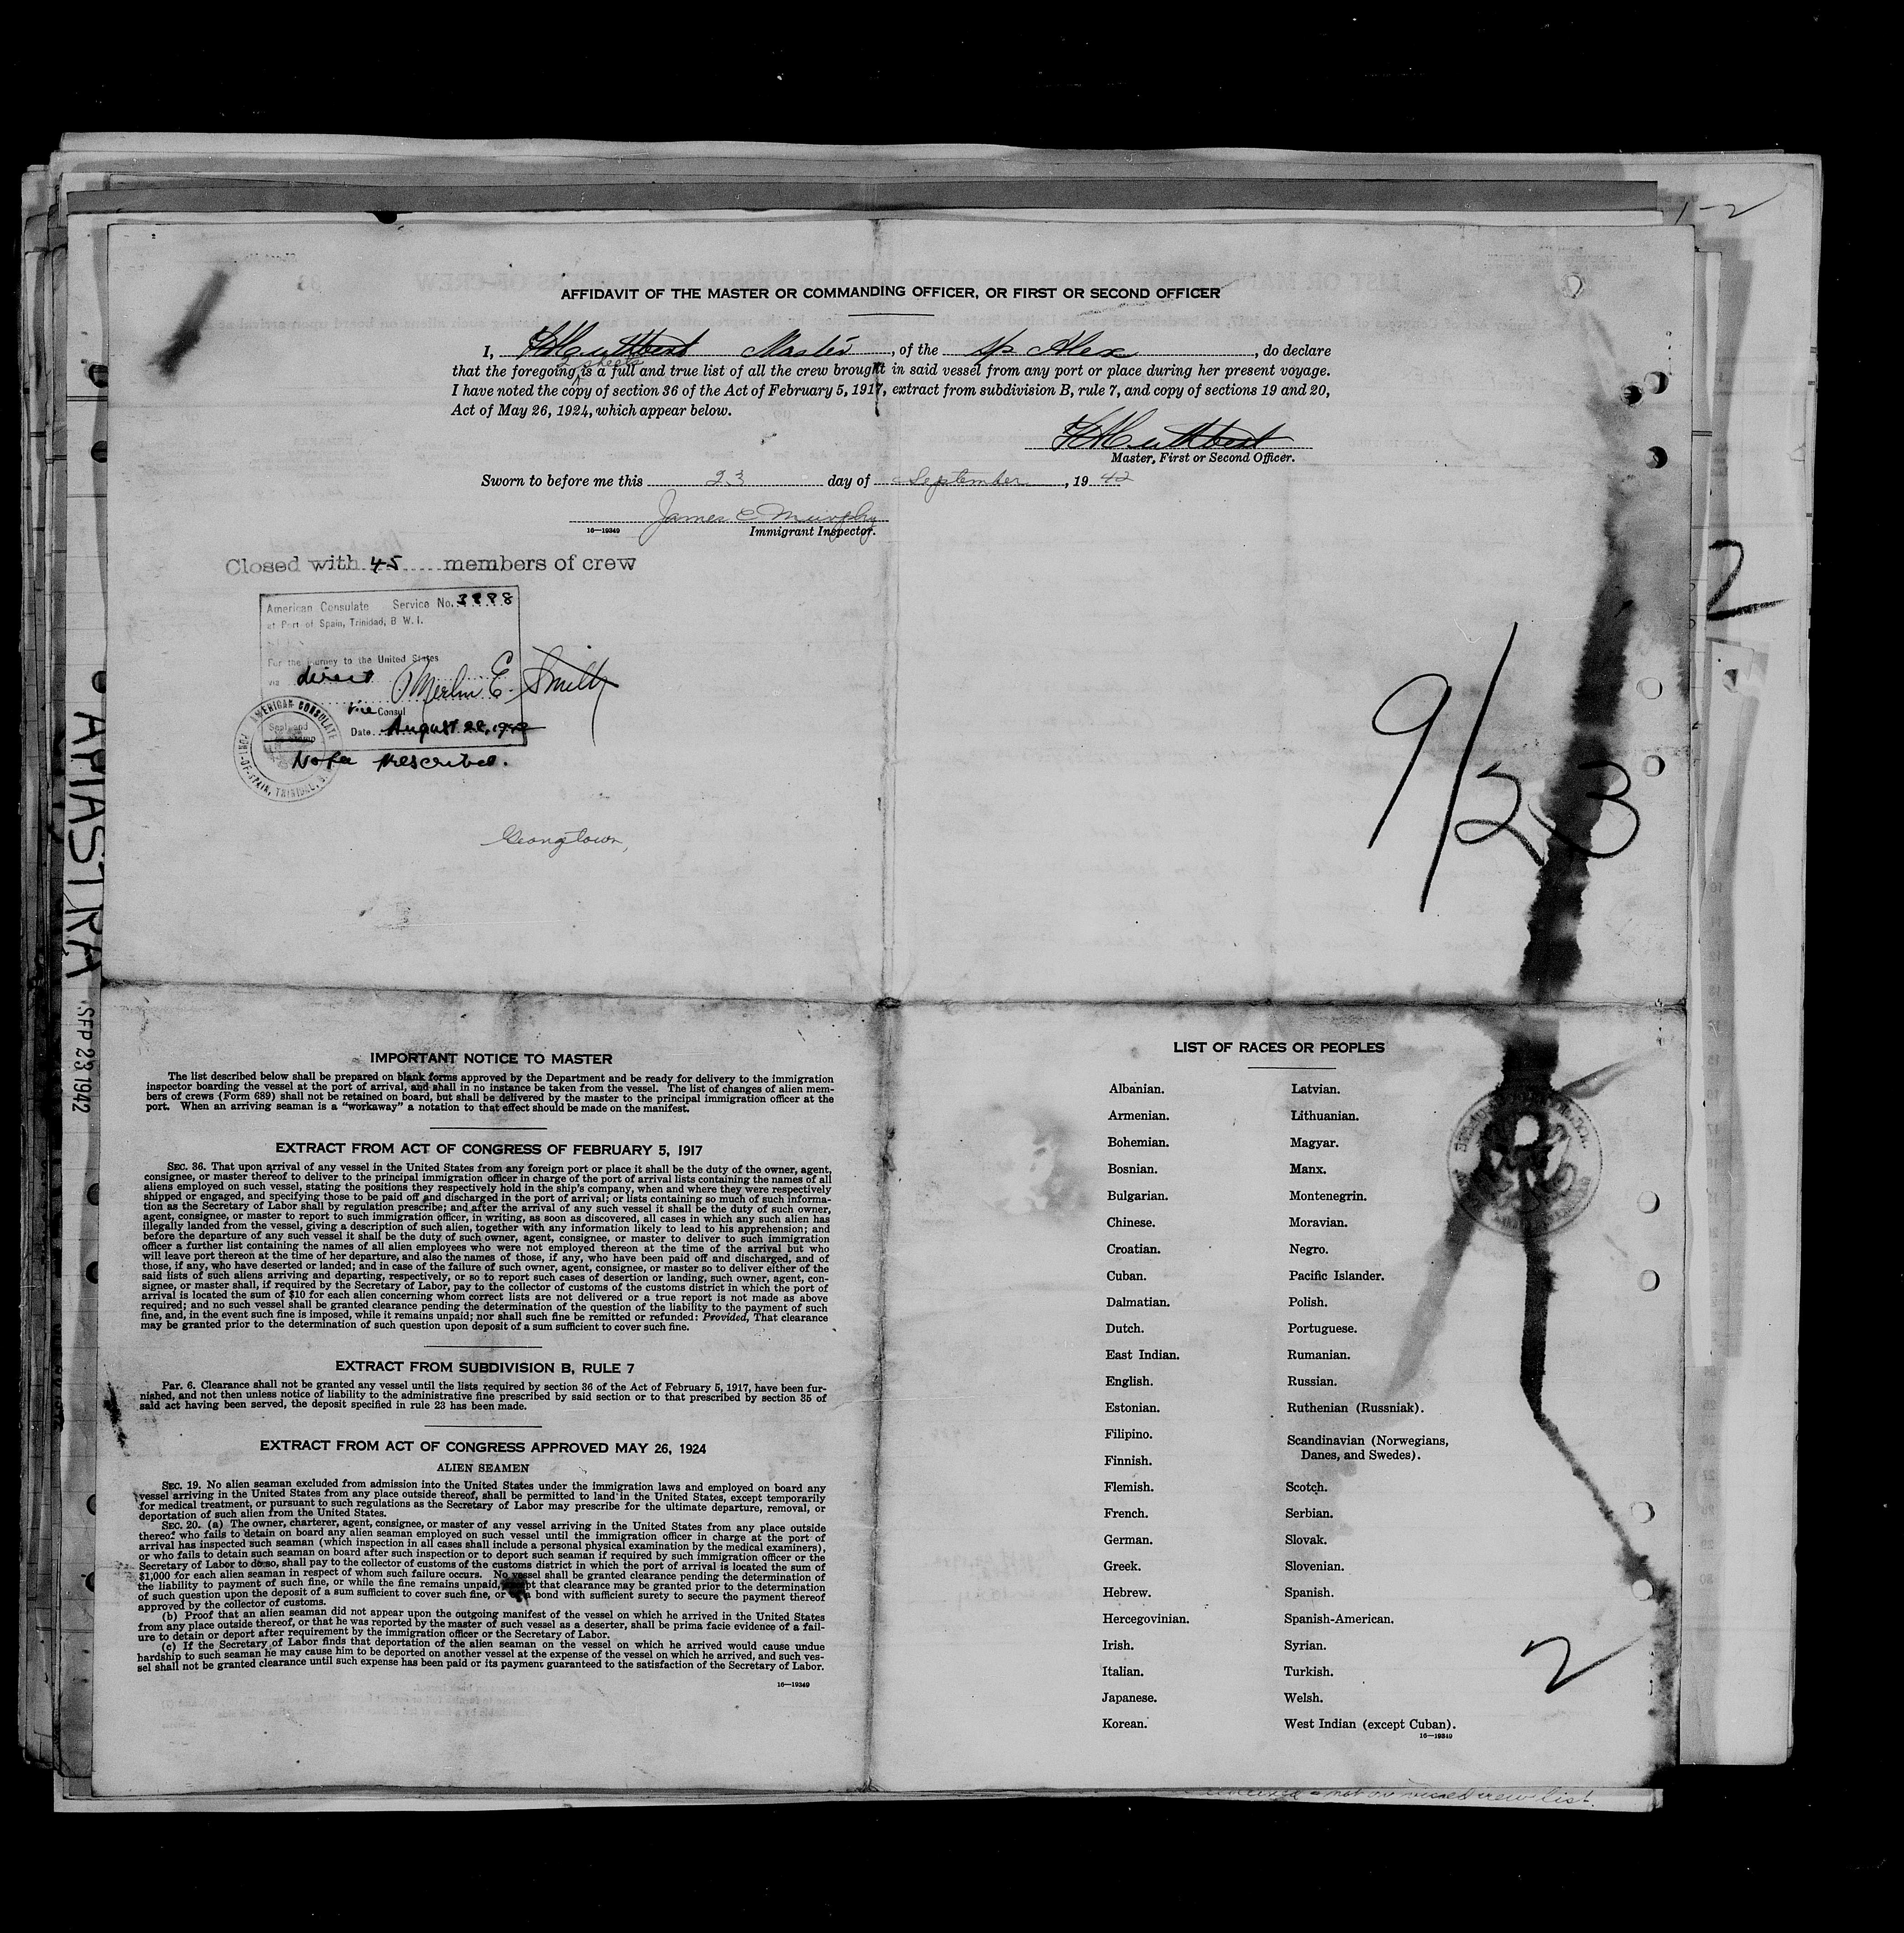 1-2
AFFIDAVIT OF THE MASTER OR COMMANDING OFFICER, OR FIRST OR SECOND OFFICER
I, H H Cuthbert Master, of the Alex, do declare
2 sheets
that the foregoing is a full and true list of all the crew brought in said vessel from any port or place during her present voyage.
I have noted the copy of section 36 of the Act of February 5, 1917, extract from subdivision B, rule 7, and copy of sections 19 and 20,
Act of May 26, 1924, which appear below.
Cuthbert
Master, First or Second Officer.
Sworn to before me this 23 day of September, 1942
James C Murphy
16—19349 Immigrant Inspector.
Closed with 45 members of crew
American Consulate Service No. 3888
at Port of Spain, Trinidad, B W. I.
For the journey to the United States
via direct Merlin E. Smith
Vice Consul
Date August 28, 1942
Seal and
AMERICAN CONSULATE
PORT-OF-SPAIN, TRINIDAD, B.
No fee prescribed.
Georgtown,
9/23
2
APIASTRA
SEP 23 1942
IMPORTANT NOTICE TO MASTER
The list described below shall be prepared on blank forms approved by the Department and be ready for delivery to the immigration
inspector boarding the vessel at the port of arrival, and shall in no instance be taken from the vessel. The list of changes of alien mem-
bers of crews (Form 689) shall not be retained on board, but shall be delivered by the master to the principal immigration officer at the
port. When an arriving seaman is a “workaway” a notation to that effect should be made on the manifest.
EXTRACT FROM ACT OF CONGRESS OF FEBRUARY 5, 1917
SEC. 36. That upon arrival of any vessel in the United States from any foreign port or place it shall be the duty of the owner, agent,
consignee, or master thereof to deliver to the principal immigration officer in charge of the port of arrival lists containing the names of all
aliens employed on such vessel, stating the positions they respectively hold in the ship's company, when and where they were respectively
shipped or engaged, and specifying those to be paid off and discharged in the port of arrival; or lists containing so much of such informa-
tion as the Secretary of Labor shall by regulation prescribe; and after the arrival of any such vessel it shall be the duty of such owner,
agent, consignee, or master to report to such immigration officer, in writing, as soon as discovered, all cases in which any such alien has
illegally landed from the vessel, giving a description of such alien, together with any information likely to lead to his apprehension; and
before the departure of any such vessel it shall be the duty of such owner, agent, consignee, or master to deliver to such immigration
officer a further list containing the names of all alien employees who were not employed thereon at the time of the arrival but who
will leave port thereon at the time of her departure, and also the names of those, if any, who have been paid off and discharged, and of
those, if any, who have deserted or landed; and in case of the failure of such owner, agent, consignee, or master so to deliver either of the
said lists of such aliens arriving and departing, respectively, or so to report such cases of desertion or landing, such owner, agent, con-
signee, or master shall, if required by the Secretary of Labor, pay to the collector of customs of the customs district in which the port of
arrival is located the sum of $10 for each alien concerning whom correct lists are not delivered or a true report is not made as above
required; and no such vessel shall be granted clearance pending the determination of the question of the liability to the payment of such
fine, and, in the event such fine is imposed, while it remains unpaid; nor shall such fine be remitted or refunded: Provided, That clearance
may be granted prior to the determination of such question upon deposit of a sum sufficient to cover such fine.
EXTRACT FROM SUBDIVISION B, RULE 7
Par. 6. Clearance shall not be granted any vessel until the lists required by section 36 of the Act of February 5, 1917, have been fur-
nished, and not then unless notice of liability to the administrative fine prescribed by said section or to that prescribed by section 35 of
said act having been served, the deposit specified in rule 23 has been made.
EXTRACT FROM ACT OF CONGRESS APPROVED MAY 26, 1924
ALIEN SEAMEN
SEC. 19. No alien seaman excluded from admission into the United States under the immigration laws and employed on board any
vessel arriving in the United States from any place outside thereof, shall be permitted to land in the United States, except temporarily
for medical treatment, or pursuant to such regulations as the Secretary of Labor may prescribe for the ultimate departure, removal, or
deportation of such alien from the United States.
SEC. 20. (a) The owner, charterer, agent, consignee, or master of any vessel arriving in the United States from any place outside
thereof who fails to detain on board any alien seaman employed on such vessel until the immigration officer in charge at the port of
arrival has inspected such seaman (which inspection in all cases shall include a personal physical examination by the medical examiners),
or who fails to detain such seaman on board after such inspection or to deport such seaman if required by such immigration officer or the
Secretary of Labor to do so, shall pay to the collector of customs of the customs district in which the port of arrival is located the sum of
$1,000 for each alien seaman in respect of whom such failure occurs. No vessel shall be granted clearance pending the determination of
the liability to payment of such fine, or while the fine remains unpaid, except that clearance may be granted prior to the determination
of such question upon the deposit of a sum sufficient to cover such fine, or a bond with sufficient surety to secure the payment thereof
approved by the collector of customs.
(b) Proof that an alien seaman did not appear upon the outgoing manifest of the vessel on which he arrived in the United States
from any place outside thereof, or that he was reported by the master of such vessel as a deserter, shall be prima facie evidence of a fail-
ure to detain or deport after requirement by the immigration officer or the Secretary of Labor.
(c) If the Secretary of Labor finds that deportation of the alien seaman on the vessel on which he arrived would cause undue
hardship to such seaman he may cause him to be deported on another vessel at the expense of the vessel on which he arrived, and such ves-
sel shall not be granted clearance until such expense has been paid or its payment guaranteed to the satisfaction of the Secretary of Labor.
16—19349
LIST OF RACES OR PEOPLES
Albanian.
Armenian.
Bohemian.
Bosnian.
Bulgarian.
Chinese.
Croatian.
Cuban.
Dalmatian.
Dutch.
East Indian.
English.
Estonian.
Filipino.
Finnish.
Flemish.
French.
German.
Greek.
Hebrew.
Hercegovinian.
Irish.
Italian.
Japanese.
Korean.
Latvian.
Lithuanian.
Magyar.
Manx.
Montenegrin.
Moravian.
Negro.
Pacific Islander.
Polish.
Portuguese.
Rumanian.
Russian.
Ruthenian (Russniak).
Scandinavian (Norwegians,
Danes, and Swedes).
Scotch.
Serbian.
Slovak.
Slovenian.
Spanish.
Spanish-American.
Syrian.
Turkish.
Welsh.
West Indian (except Cuban).
16—19349
2
crew list.